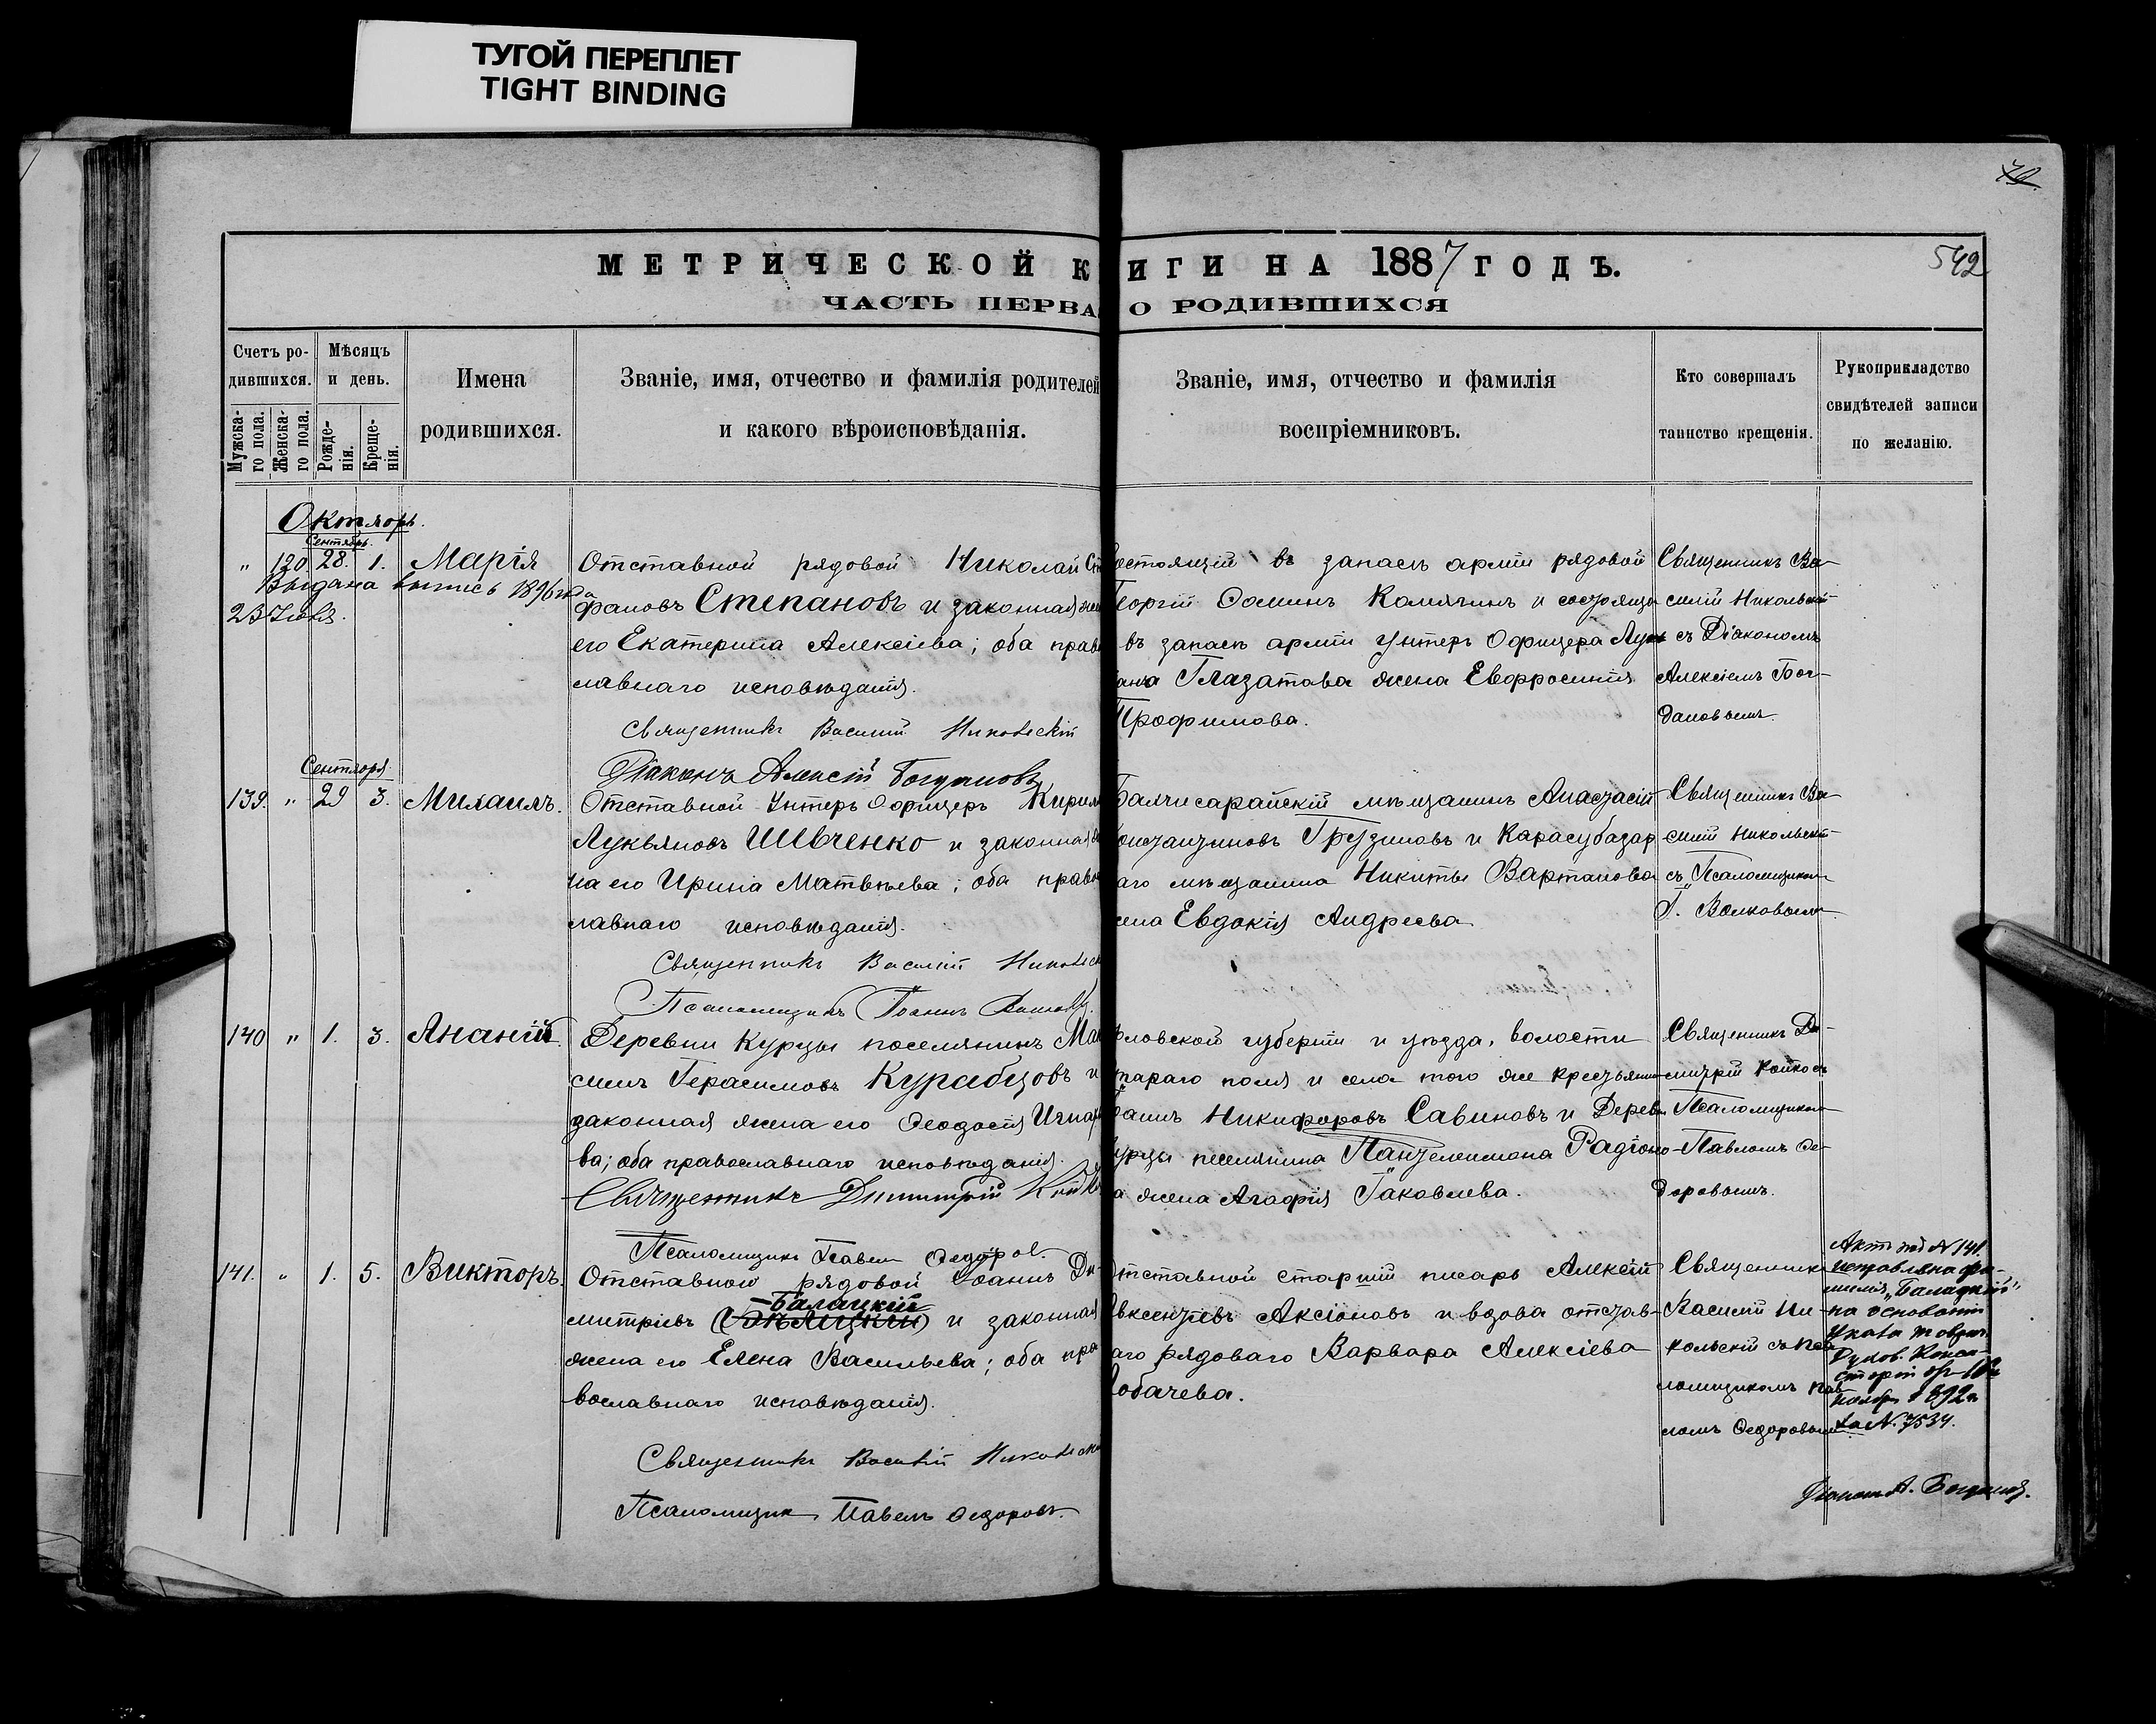 ТУГОЙ ПЕРЕПЛЕТ
TIGHT BINDING
542
МЕТРИЧЕСКОЙ К ИГИ НА 1887 ГОДЪ.
ЧАСТЬ ПЕРВА О РОДИВШИХСЯ
Счетъ ро-
дившихся.
Мужска-
го пола.
Женска-
го пола.
Мѣсяцъ
и день.
Рожде-
нія.
Креще-
нія.
Имена
родившихся.
Званіе, имя, отчество и фамилія родителей
и какого вѣроисповѣданія.
Званіе, имя, отчество и фамилія
воспріемниковъ.
Кто совершалъ
таинство крещенія.
Рукоприкладство
свидѣтелей записи
по желанію.
Октябрь.
Сентябрь.
" 120 28. 1. Марія
Выдана выпись 1896 года
23 Іюня.
Отставной рядовой Николай Сте
фановъ Степановъ и законная же
его Екатерина Алексіева; оба право
славнаго исповѣданія.
Священникъ Василій Никольскій
Діаконъ Алексій Богдановъ
остоящій въ запасѣ арміи рядовой
Георгій Ѳоминъ Калячинъ и состояща
въ запасѣ арміи Унтеръ Офицера Лукі
яна Глазатова жена Евфросинія
Трофимова.
Священникъ Ва-
силій Никольскій
съ Діакономъ
Алексіемъ Бог-
дановымъ.
Сентября
139. " 29 3. Михаилъ.
Отставной Унтеръ Офицеръ Кирил
Лукьяновъ Шевченко и законная же
на его Ирина Матвѣева; оба право
славнаго исповѣданія.
Священникъ Василій Никольск
Псаломщикъ Іоаннъ
Бахчисарайскій мѣщанинъ Анастасій
онстантиновъ Грузиновъ и Карасубазар
аго мѣщанина Никиты Вартанова
ена Евдокія Андреева
Священникъ Ва-
силій Никольскій
съ Псаломщиком
І. Волковымъ
140 " 1. 3. Ананій.
Деревни Курцы поселянинъ Мак
симъ Герасимовъ Курабцовъ и
законная жена его Ѳеодосія Игнать
ва; оба православнаго исповѣданія.
Священникъ Димитрій Койко
Псаломщикъ Павелъ Ѳедоров.
рловской губерніи и уѣзда, волости
тараго поля и села того же крестьянин
Никифоровъ Савиновъ и Деревн
урцы поселянина Пантелеимона Радіоно-
а жена Агафія Іаковлева.
Священникъ Ди-
митрій Койко съ
Псаломщиком
Павломъ Ѳе-
доровымъ.
141. " 1. 5. Викторъ.
Отставной рядовой Іоаннъ Ди
Балацкій
митріевъ (Бѣляцкій) и законная
жена его Елена Васильева; оба пра
вославнаго исповѣданія.
Священникъ Василій Никольск
Псаломщикъ Павелъ Ѳедоровъ.
тставной старшій писарь Алексій
вксентіевъ Аксіоновъ и вдова отстав-
аго рядоваго Варвара Алексіева
обачева.
Священникъ
Василій Ни-
кольскій съ Пса
ломщикомъ Пав
ломъ Ѳедоровым
Актъ подъ N 141.
исправлена фа-
милія „Балацкій"
на основаніи
Указа Таврич.
Духов. Конси-
сторіи отъ 16
ноября 1892 г.
за N. 7534.
Діаконъ А. Богдановъ.